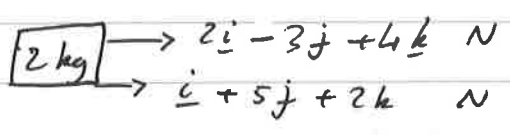 2 kg → 2i - 3j + 4k N
→ i + 5j + 2k N